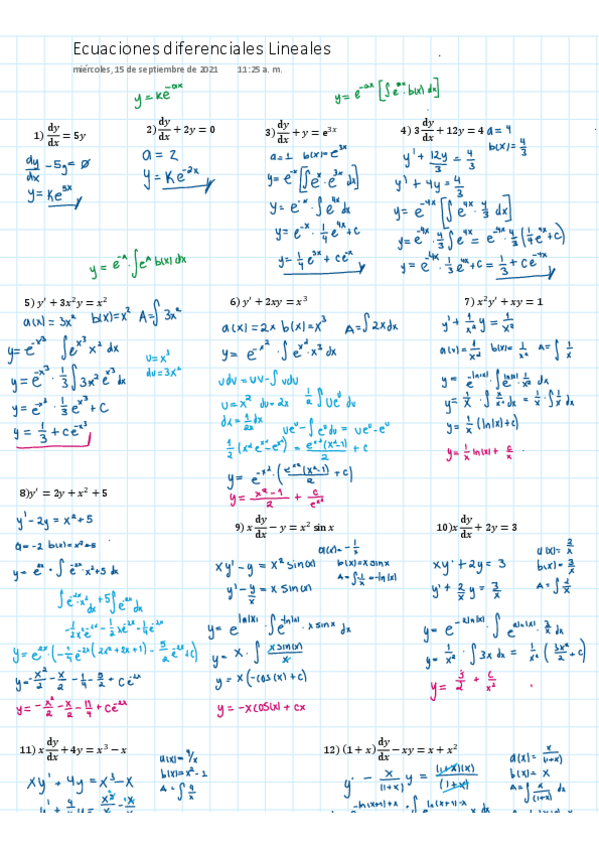 Ecuaciones diferenciales Lineales
miércoles, 15 de septiembre de 2021 11:25 a. m.
y = ke^-ax
y = e^-ax [∫e^ax · b(x) dx]
1) dy/dx = 5y
dy/dx - 5y = 0
y = Ke^5x
2) dy/dx + 2y = 0
a = 2
y = Ke^-2x
3) dy/dx + y = e^3x
a = 1 b(x) = e^3x
y = e^-x [∫e^x · e^3x dx]
y = e^-x · ∫e^4x dx
y = e^-x · 1/4 e^4x + C
y = 1/4 e^3x + ce^-x
4) 3 dy/dx + 12y = 4
a = 4
b(x) = 4/3
y' + 12y/3 = 4/3
y' + 4y = 4/3
y = e^-4x [∫e^4x · 4/3 dx]
y = e^-4x · 4/3 ∫e^4x = e^-4x · 4/3 (1/4 e^4x + C)
y = e^-4x · 1/3 e^4x + C = 1/3 + ce^-4x
y = e^-A · ∫e^A b(x) dx
5) y' + 3x²y = x²
a(x) = 3x² b(x) = x² A = ∫3x²
y = e^-x³ ∫e^x³ x² dx
u = x³
du = 3x²
y = e^-x³ · 1/3 ∫3x² e^x³ dx
y = e^-x³ · 1/3 e^x³ + C
y = 1/3 + ce^-x³
6) y' + 2xy = x³
a(x) = 2x b(x) = x³ A = ∫2x dx
y = e^-x² · ∫e^x² · x³ dx
udv = uv - ∫vdu
u = x² du = 2x 1/2 ∫ue^u du
dx = 1/2x dx
ue^u - ∫e^u du = ue^u - e^u
1/2 (x²e^x² - e^x²) = e^x²(x²-1)/2 + C
y = e^-x² · (e^x²(x²-1)/2 + C)
y = x²-1/2 + C/e^x²
7) x²y' + xy = 1
y' + 1/x y = 1/x²
b(x) = 1/x² A = ∫1/x
y = e^-ln(x) · ∫e^ln(x) · 1/x² dx
y = 1/x · ∫x/x² dx = 1/x · ∫1/x dx
y = 1/x (ln(x) + C)
y = 1/x ln(x) + C/x
8) y' = 2y + x² + 5
y' - 2y = x² + 5
a = -2 b(x) = x² + 5
y = e^2x · ∫e^-2x · x² + 5 dx
∫e^-2x · x² dx + 5∫e^-2x dx
-1/2 x²e^-2x - 1/2 xe^-2x - 1/4 e^-2x
y = e^2x · (-1/4 e^-2x (2x² + 2x + 1) - 5/2 e^-2x + C)
y = -x²/2 - x/2 - 1/4 - 5/2 + Ce^2x
y = -x²/2 - x/2 - 11/4 + Ce^2x
9) x dy/dx - y = x² sin x
a(x) = -1/x
xy' - y = x² sin(x) b(x) = x sin x
y' - y/x = x sin(x)
y = e^ln(x) · ∫e^-ln(x) · x sin x dx
y = x · ∫ x sin(x)/x
y = x (-cos(x) + C)
y = -x cos(x) + cx
10) x dy/dx + 2y = 3
a(x) = 2/x
xy' + 2y = 3 b(x) = 3/x
y' + 2/x y = 3/x A = ∫2/x
y = e^-2ln(x) · ∫e^2ln(x) · 3/x dx
y = 1/x² · ∫3x dx = 1/x² (3x²/2 + C)
y = 3/2 + C/x²
11) x dy/dx + 4y = x³ - x
a(x) = 4/x
xy' + 4y = x³ - x b(x) = x² - 1
A = ∫4/x
12) (1 + x) dy/dx - xy = x + x²
y' - x/(1+x) y = (1+x)(x)/(1+x)
b(x) = x